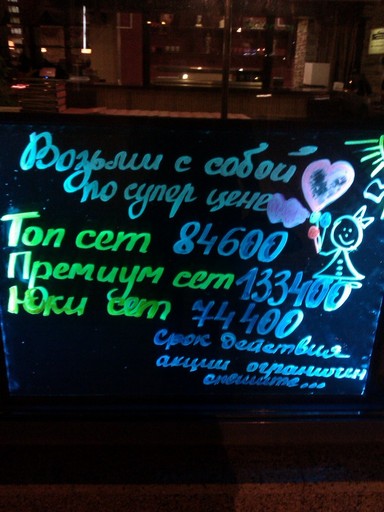 Возьми с собой
по супер цене
Топ сет 84600
Премиум сет 133400
Юки сет 74400
Срок действия
акции ограничен
спешите...